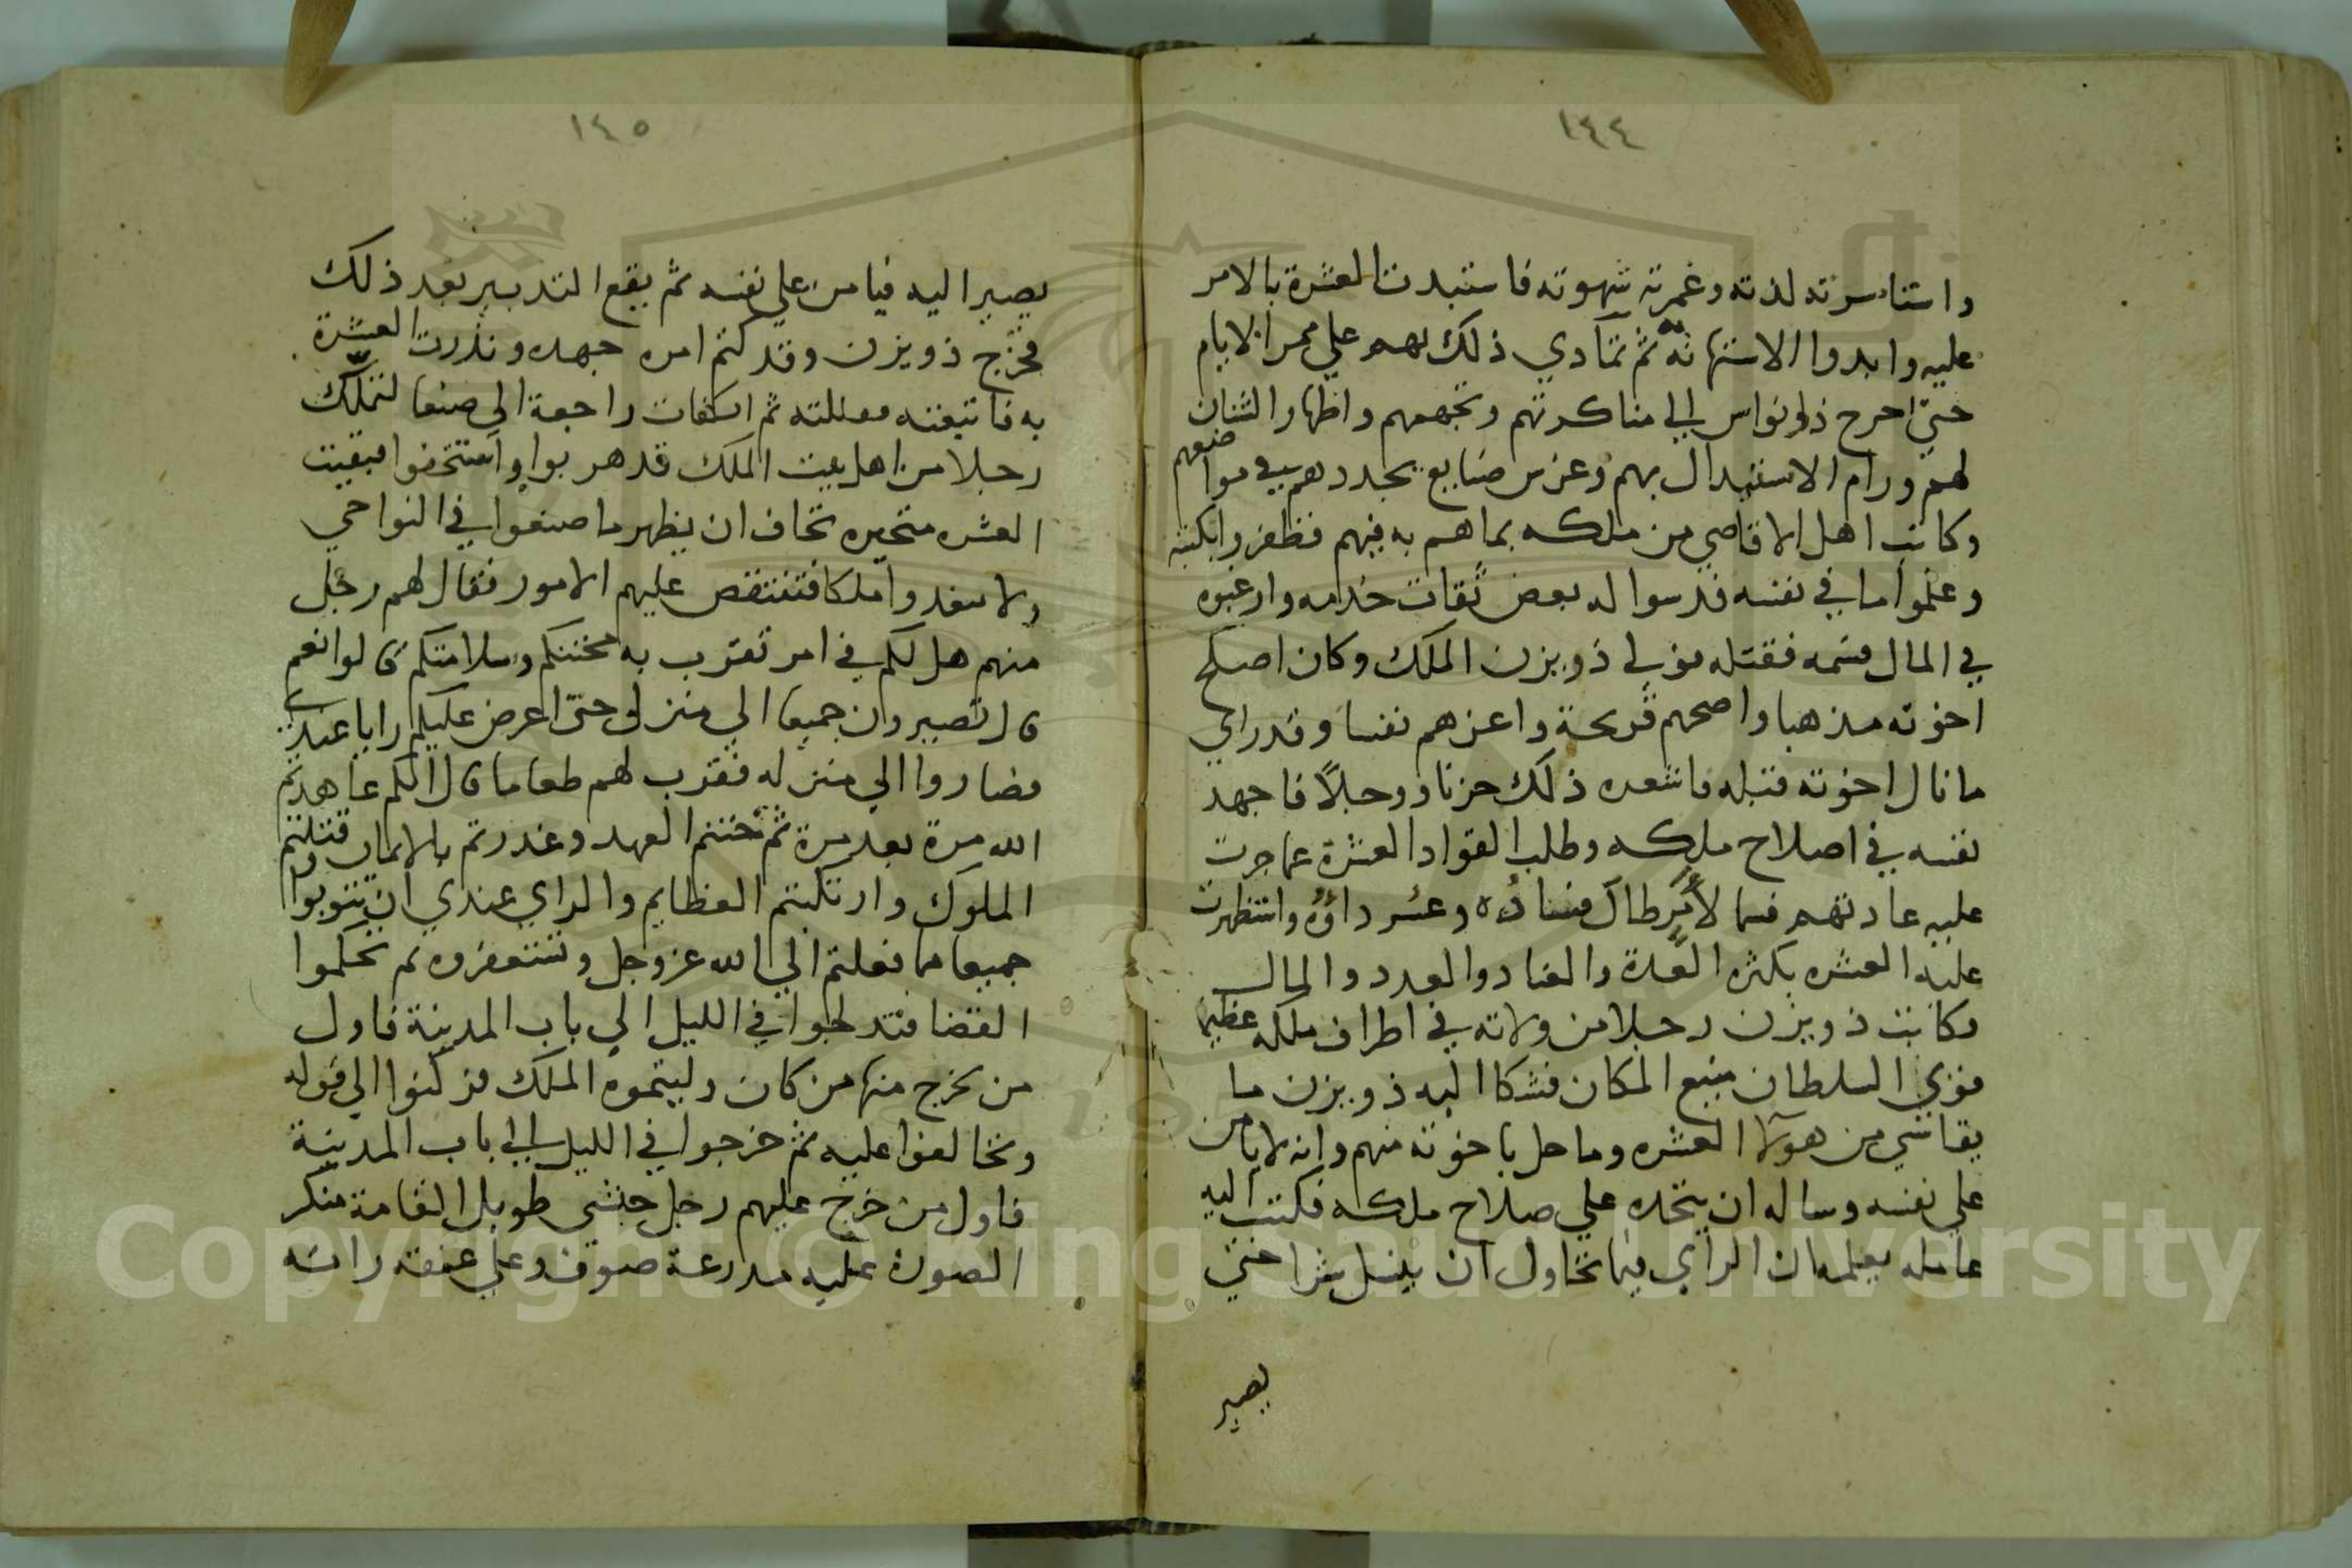 ١٤٤
واستاسرته لذته وغمرته شهوته فاستبدت العشرة بالامر
عليه وابدوا الاستهانة ثم تمادي ذلك بهم علي ممر الايام
حتي احرج ذو نواس الي مناكرتهم وتجهمهم واظهار الشنان
لهم ورام الاستبدال بهم وغرس صنايع يجددهم في مواضعهم
وكاتب اهل الاقاصي من ملكه بما هم به فيهم فظفروا بكتبه
وعلموا ما في نفسه فدسوا له بعض ثقات خدمه وارغبوه
في المال فسمه فقتله فولي ذو يزن الملك وكان اصلح
اخوته مذهبا واصحهم قريحة واعزهم نفسا وقد راي
ما نال اخوته قبله فاشعده ذلك حزنا ووجلاً فاجهد
نفسه في اصلاح ملكه وطلب القواد العشرة عما جرت
عليه عادتهم فسما لأمر طال فساده وعسر داؤه واستظهرت
عليه العشره بكثره العدة والعتاد والعدد والمال
فكاتب ذو يزن رجلا من ولاته في اطراف ملكه عظيما
قوي السلطان منيع المكان فشكا اليه ذو يزن ما
يقاسي من هولآ العشره وما حل باخوته منهم وانه لا يامن
علي نفسه وساله ان ينجده علي صلاح ملكه فكتب اليه
عامله يعلمه ان الراي فيما تحاول ان ينسل سرا حتي
يصير
١٤٥
يصير اليه فيامن علي نفسه ثم يقع التدبير بعد ذلك
فخرج ذو يزن وقد كتم امره جهده ونذرت العشرة
به فاتبعته فقتلته ثم انكفات راجعة الي صنعا لتملك
رجلا من اهل بيت الملك قد هربوا واستخفوا فبقيت
العشره متحيره تخاف ان يظهر ما صنعوا في النواحي
ولا يقدوا ملكا فتنتقض عليهم الامور فقال لهم رجل
منهم هل لكم في امر تقرب به محنتكم وسلامتكم قالوا نعم
قال تصيرون جميعا الي منزلي حتي اعرض عليكم رايا عندي
فصاروا الي منزله فقرب لهم طعاما قال انكم عاهدتم
الله مرة بعد مرة ثم ختنم العهد وغدرتم بالايمان وقتلتم
الملوك وارتكبتم العظايم والراي عندي ان تتوبوا
جميعا مما فعلتم الي الله عز وجل وتستغفروه ثم تحكموا
القضا فتدلجوا في الليل الي باب المدينة فاول
من يخرج منها من كان وليتموه الملك فركنوا الي قوله
وتحالفوا عليه ثم خرجوا في الليل الي باب المدينة
فاول من خرج عليهم رجل حبشي طويل القامة منكر
الصورة عليه مدرعة صوف وعلي عنقه راسه
Copyright © King Saud University